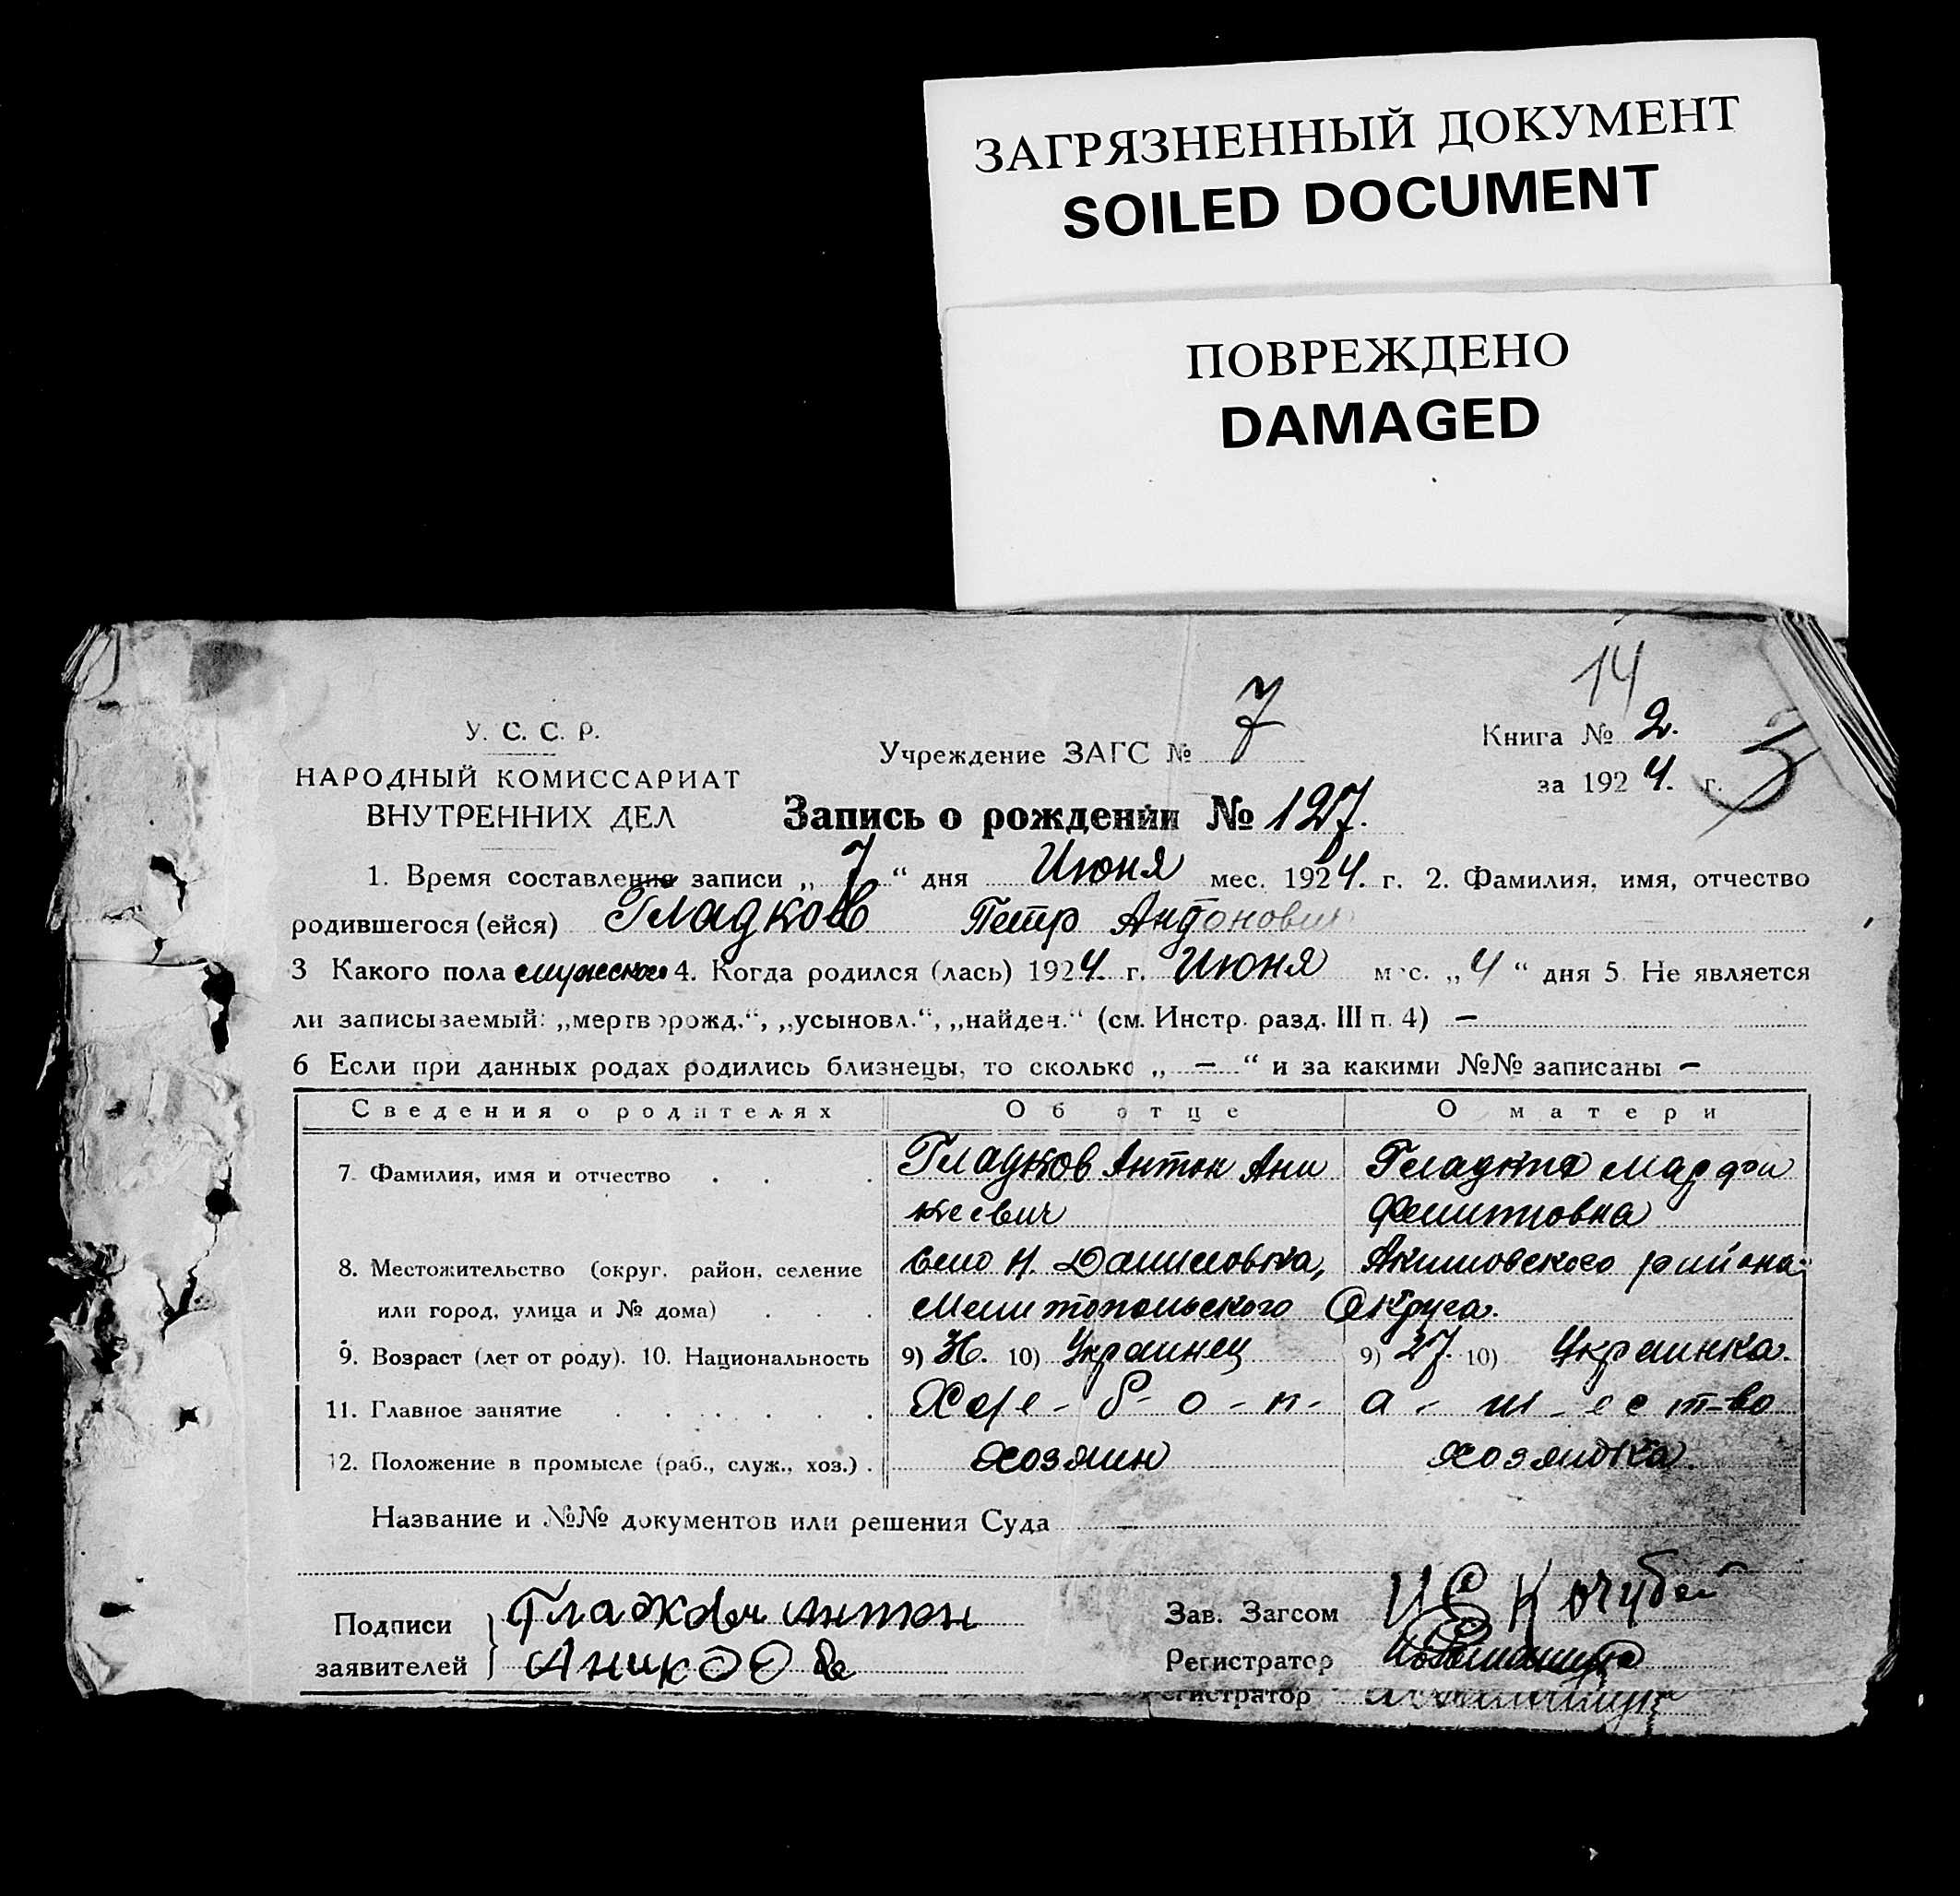 ЗАГРЯЗНЕННЫЙ ДОКУМЕНТ
SOILED DOCUMENT
ПОВРЕЖДЕНО
DAMAGED
14
У. С. С. Р.
НАРОДНЫЙ КОМИССАРИАТ
ВНУТРЕННИХ ДЕЛ
Учреждение ЗАГС № 7
Книга № 2.
за 1924. г.
Запись о рождении № 127.
1. Время составление записи „ 7 “ дня Июня мес. 1924. г. 2. Фамилия, имя, отчество
родившегося (ейся) Гладков Петр Антонович
3 Какого пола мужского 4. Когда родился (лась) 1924. г. Июня мес. „ 4 “ дня 5. Не является
ли записываемый: „мертворожд.“, „усыновл.“, „найден.“ (см. Инстр. разд. III п. 4) —
6 Если при данных родах родились близнецы, то сколько „ — “ и за какими №№ записаны —
Сведения о родителях Об отце О матери
7. Фамилия, имя и отчество . . . Гладков Антон Ани
кеевич
8. Местожительство (округ, район, селение Село Н. Даниловка, Акимовского района
или город, улица и № дома) . . . Мелитопольского Округа.
9. Возраст (лет от роду). 10. Национальность 9) 10) Украинец 9) 27. 10) Украинка.
11. Главное занятие . . . . . . Хле-б-о-п-а-ш-ест-во
12. Положение в промысле (раб., служ., хоз.) . хозяин хозяйка.
Название и №№ документов или решения Суда —
Подписи
заявителей
Гладков Антон
Зав. Загсом Кочубей
Регистратор
гистратор